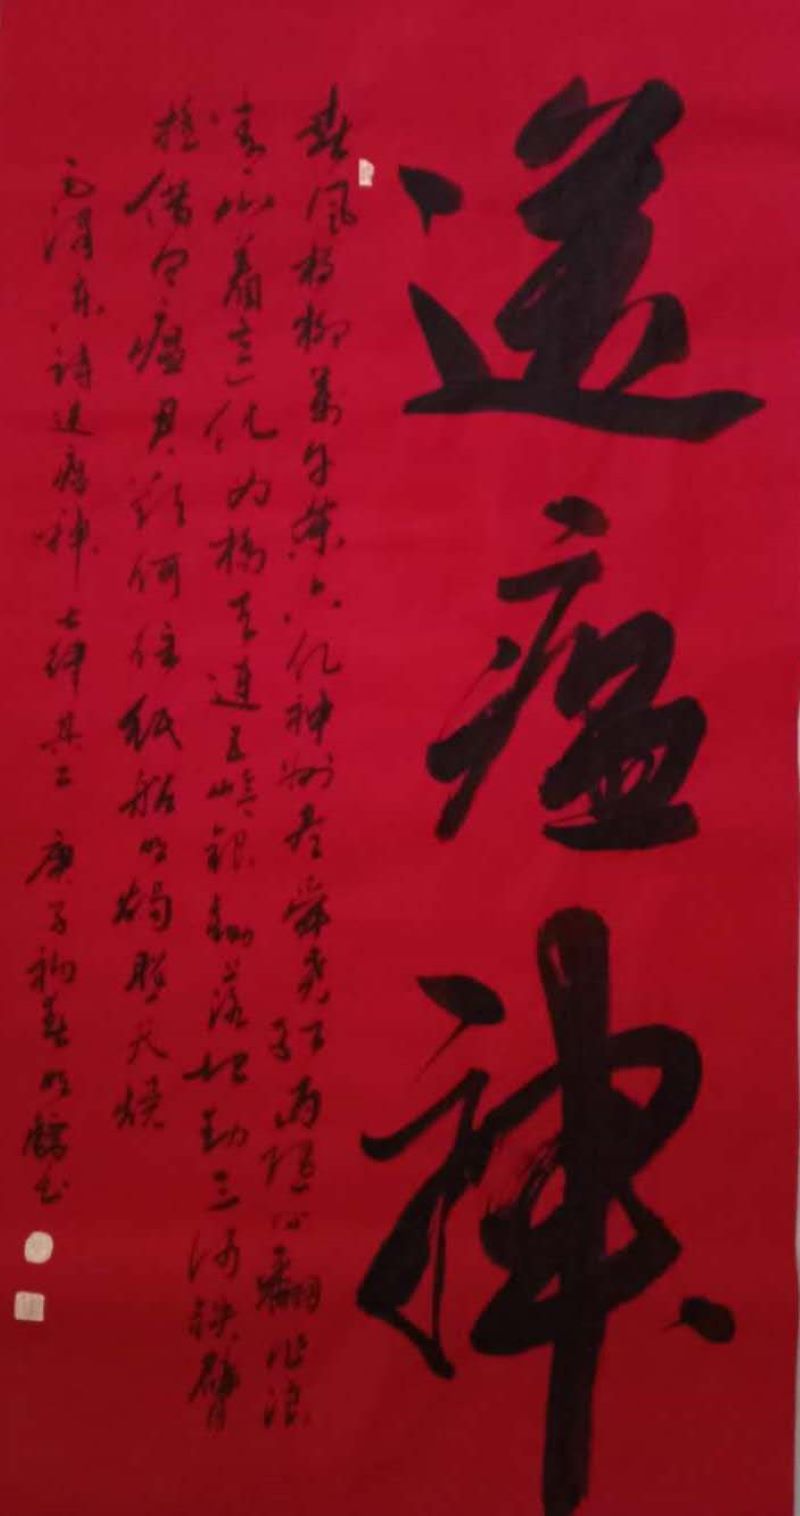 送瘟神
春風楊柳萬千条六亿神州尽舜尧红雨随心翻作浪
青山着意化为橋天連五嶺銀鋤落地動三河鉄臂
摇借问瘟君欲何往紙船明燭照天燒
毛澤东詩送瘟神七律其二 庚子初春明书